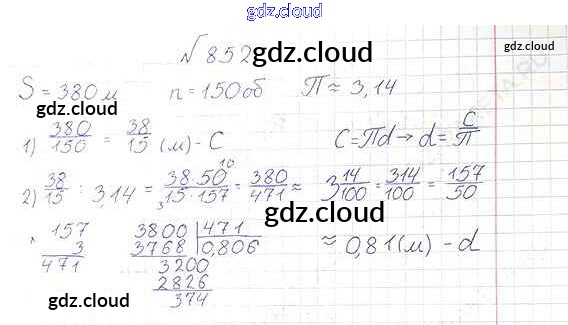 gdz.cloud
№ 852
gdz.cloud
gdz.cloud
S = 380 м n = 150 об П ≈ 3,14
gdz.cloud
1) 380/150 = 38/15 (м) - С C = Пd → d = C/П
gdz.cloud
gdz.cloud
2) 38/15 : 3,14 = 38·50 10/3 15·157 = 380/471 ≈ 3 14/100 = 314/100 = 157/50
gdz.cloud
× 157 3800 | 471 ≈ 0,81 (м) - d
3 3768 0,806
471 3200
2826
374
gdz.cloud
gdz.cloud